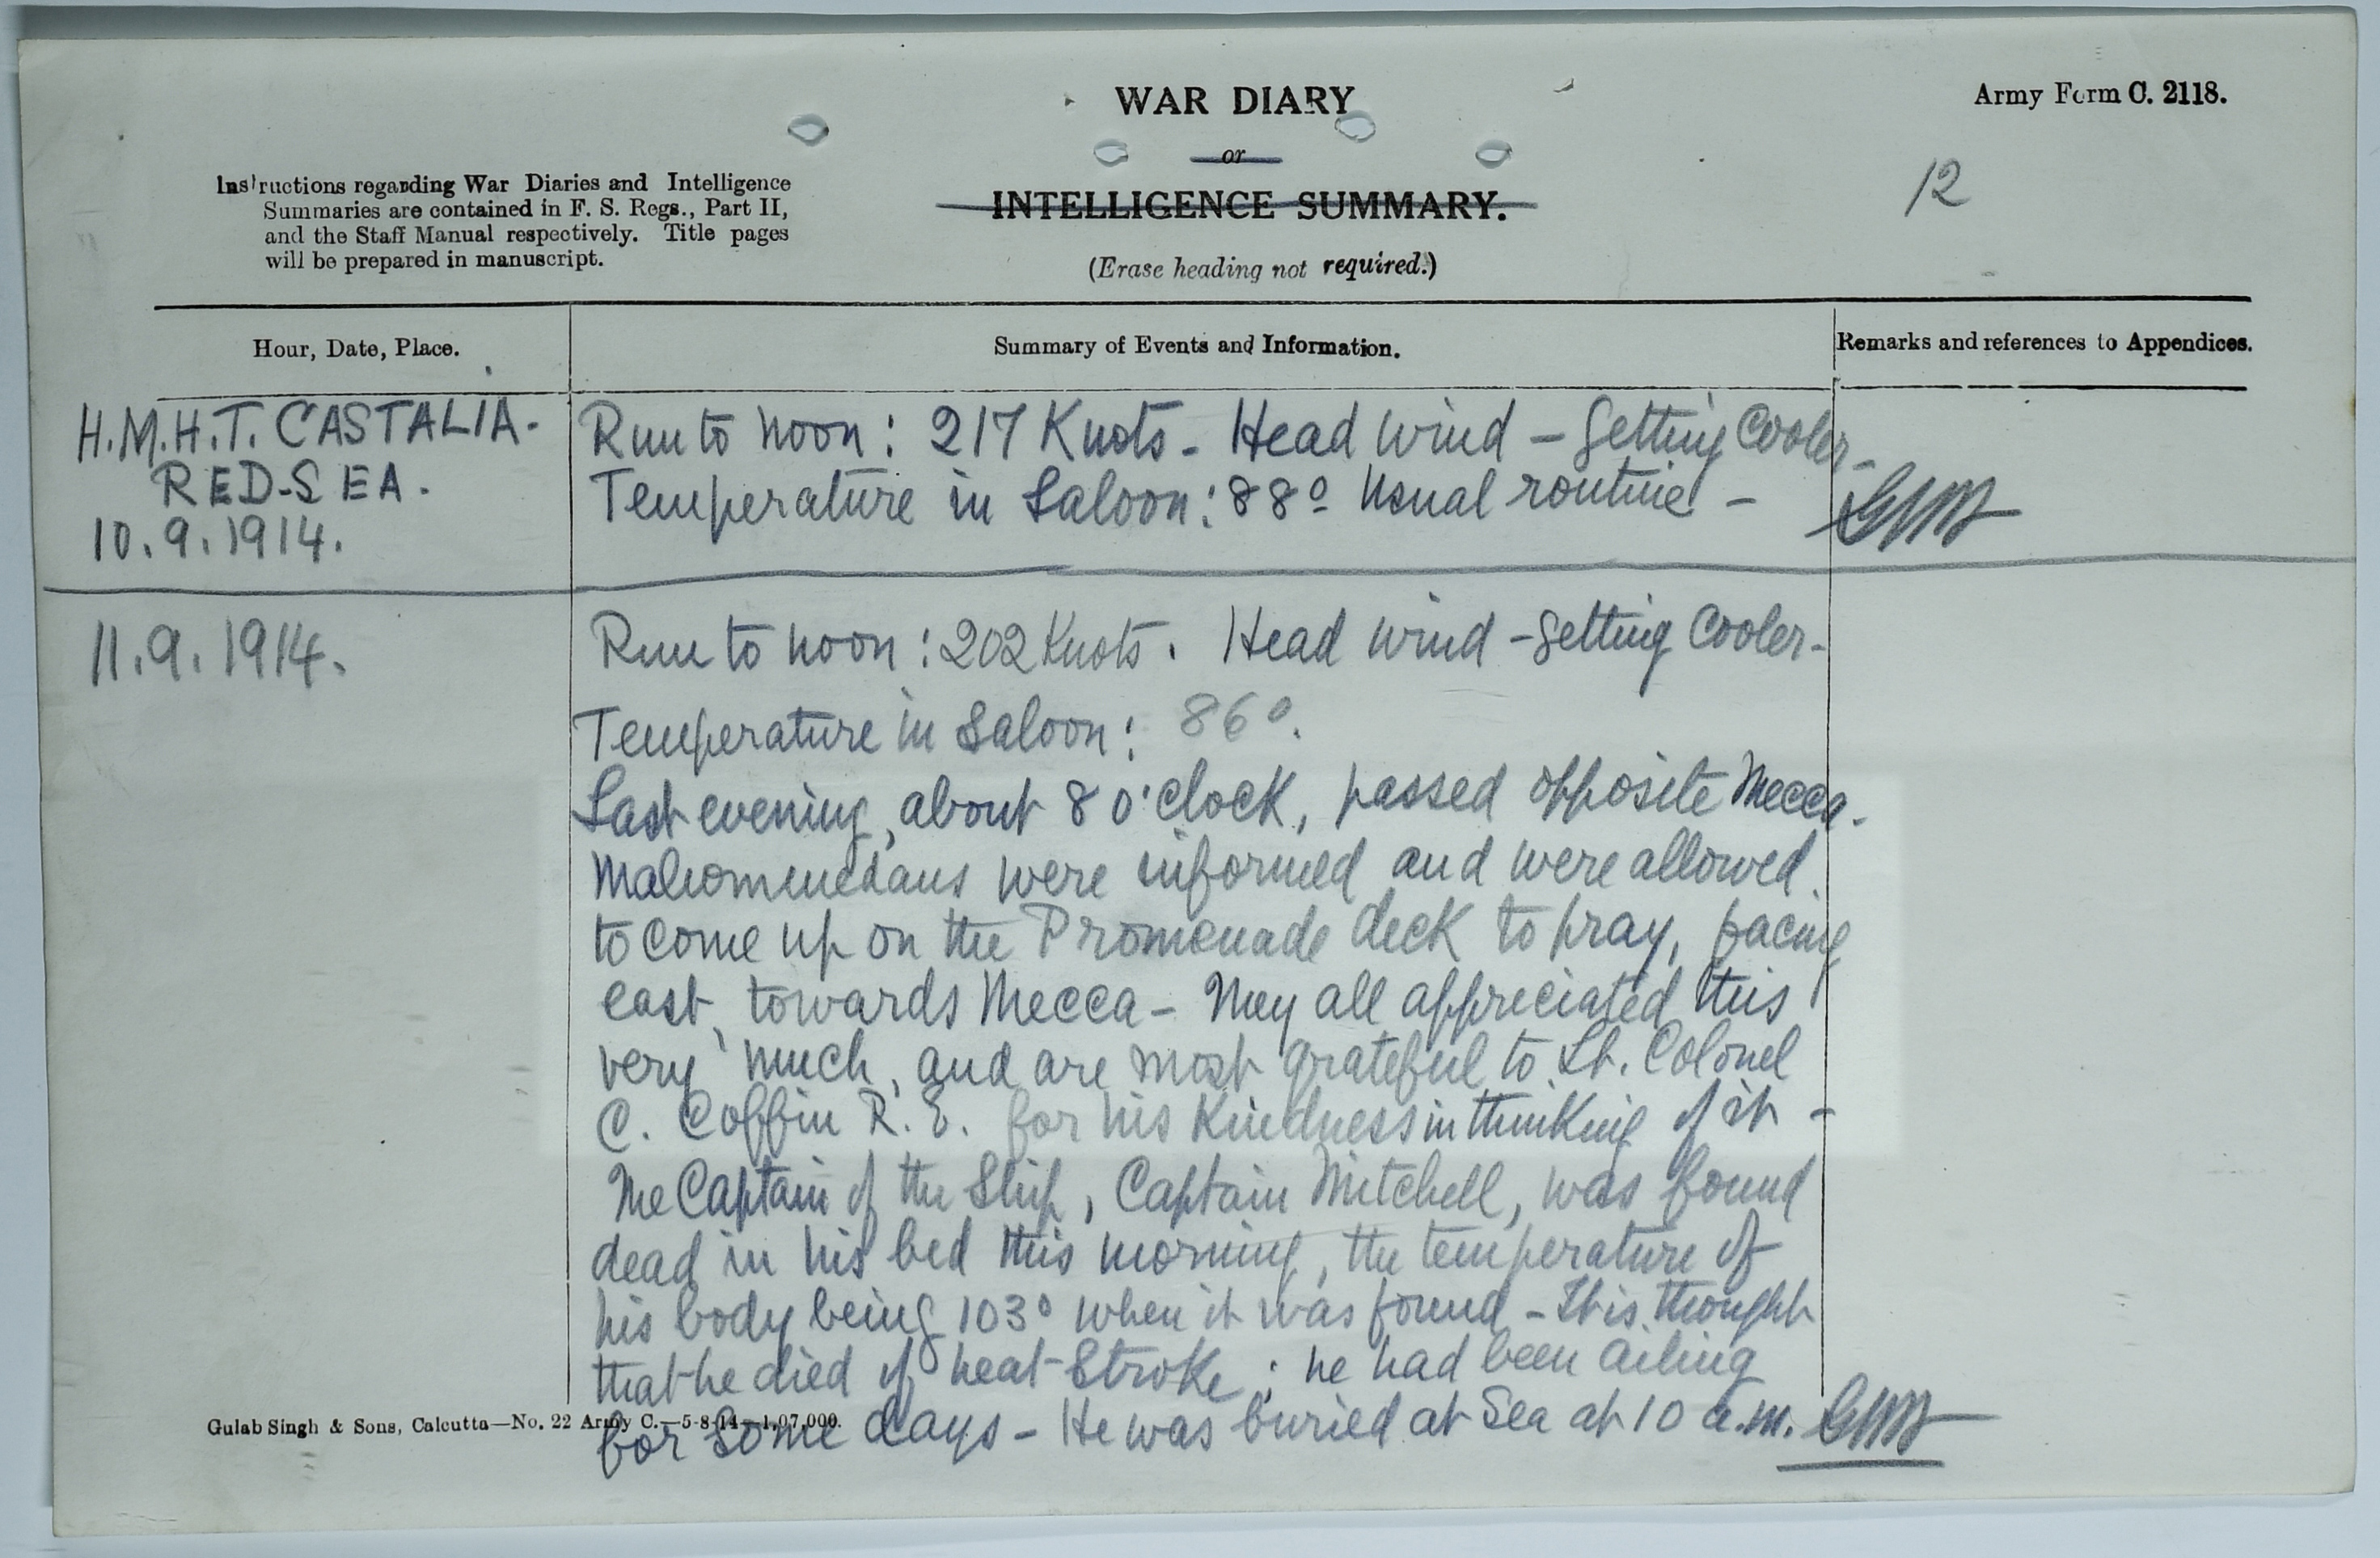 WAR DIARY
or
INTELLIGENCE SUMMARY.
(Erase heading not required.)
Army Form C. 2118.
12
Instructions regarding War Diaries and Intelligence
Summaries are contained in F. S. Regs., Part II,
and the Staff Manual respectively. Title pages
will be prepared in manuscript.
Hour, Date, Place.
Summary of Events and Information.
Remarks and references to Appendices.
H.M.H.T. CASTALIA-
RED-SEA.
10.9.1914.
Run to noon: 217 Knots- Head wind - getting cooler-
Temperature in Saloon: 88° Usual routine -
11.9.1914.
Run to noon: 202 Knots. Head wind - getting cooler-
Temperature in Saloon: 86°.
Last evening, about 8 o'clock, passed opposite Mecca-
Mahommedans were informed and were allowed
to come up on the Promenade deck to pray, facing
east, towards Mecca- They all appreciated this
very much, and are most grateful to Lt. Colonel
C. Coffin R.E. for his Kindness in thinking of it -
The Captain of the Ship, Captain Mitchell, was found
dead in his bed this morning, the temperature of
his body being 103° when it was found - It is thought
that he died of heat-Stroke; he had been ailing
for some days - He was buried at Sea at 10 a.m.
Gulab Singh & Sons, Calcutta—No. 22 Army C.—5-8-14—1,07,000.